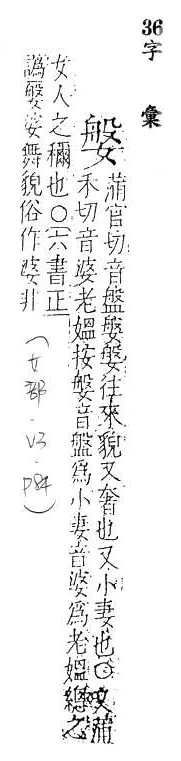 36
字彙
媻
蒲官切音盤媻媻往來貌又奢也又小妻也○又蒲
禾切音婆老媼按媻音盤爲小妻音婆爲老媼總之
女人之穪也○六書正
譌媻娑舞貌俗作婆非
(女部.V3.P84)